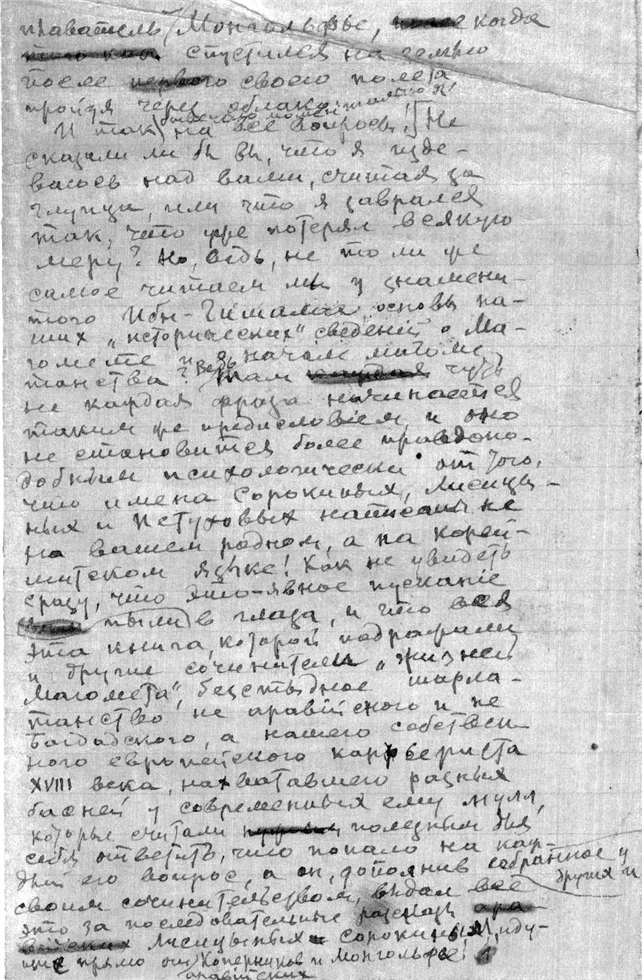 плаватель Монгольфье, когда
спустился на землю
после своего полета
пройдя через облако
И так на все вопросы! Не
сказали ли бы вы, что я изде-
ваюсь над вами, считая за
глупца, или что я заврался
так, что уже потерял всякую
меру? Но, ведь, не то ли же
самое читаем мы у знамени-
того Ибн-Гишама, основы на-
ших „исторических" сведений о Ма-
гомете и о начале магоме
танства? Ведь там чуть
не каждая фраза начинается
таким же предисловием, и оно
не становится более правдопо-
добным психологически от того,
что имена Сорокиных, Лисицы-
ных и Петуховых написаны не
на вашем родном, а на корей-
шитском языке! Как не увидеть
сразу, что это-явное пускание
пыли в глаза, и что вся
эта книга, которой подражали
и другие сочинители „жизней
Магомета", безстыдное шарла-
танство не аравийского и не
Багдадского, а нашего собствен
ного европейского карьериста
XVIII века, нахватавшего разных
басней у современных ему мулл,
которые считали полезным для
себя ответить, что попало на каж
дый его вопрос, а он, дополнив собранное у
других и
своим сочинительством, выдал все
это за последовательные рассказы
Лисицыных и Сорокиных, иду-
щие прямо от Коперников и Монгольфье
аравийских